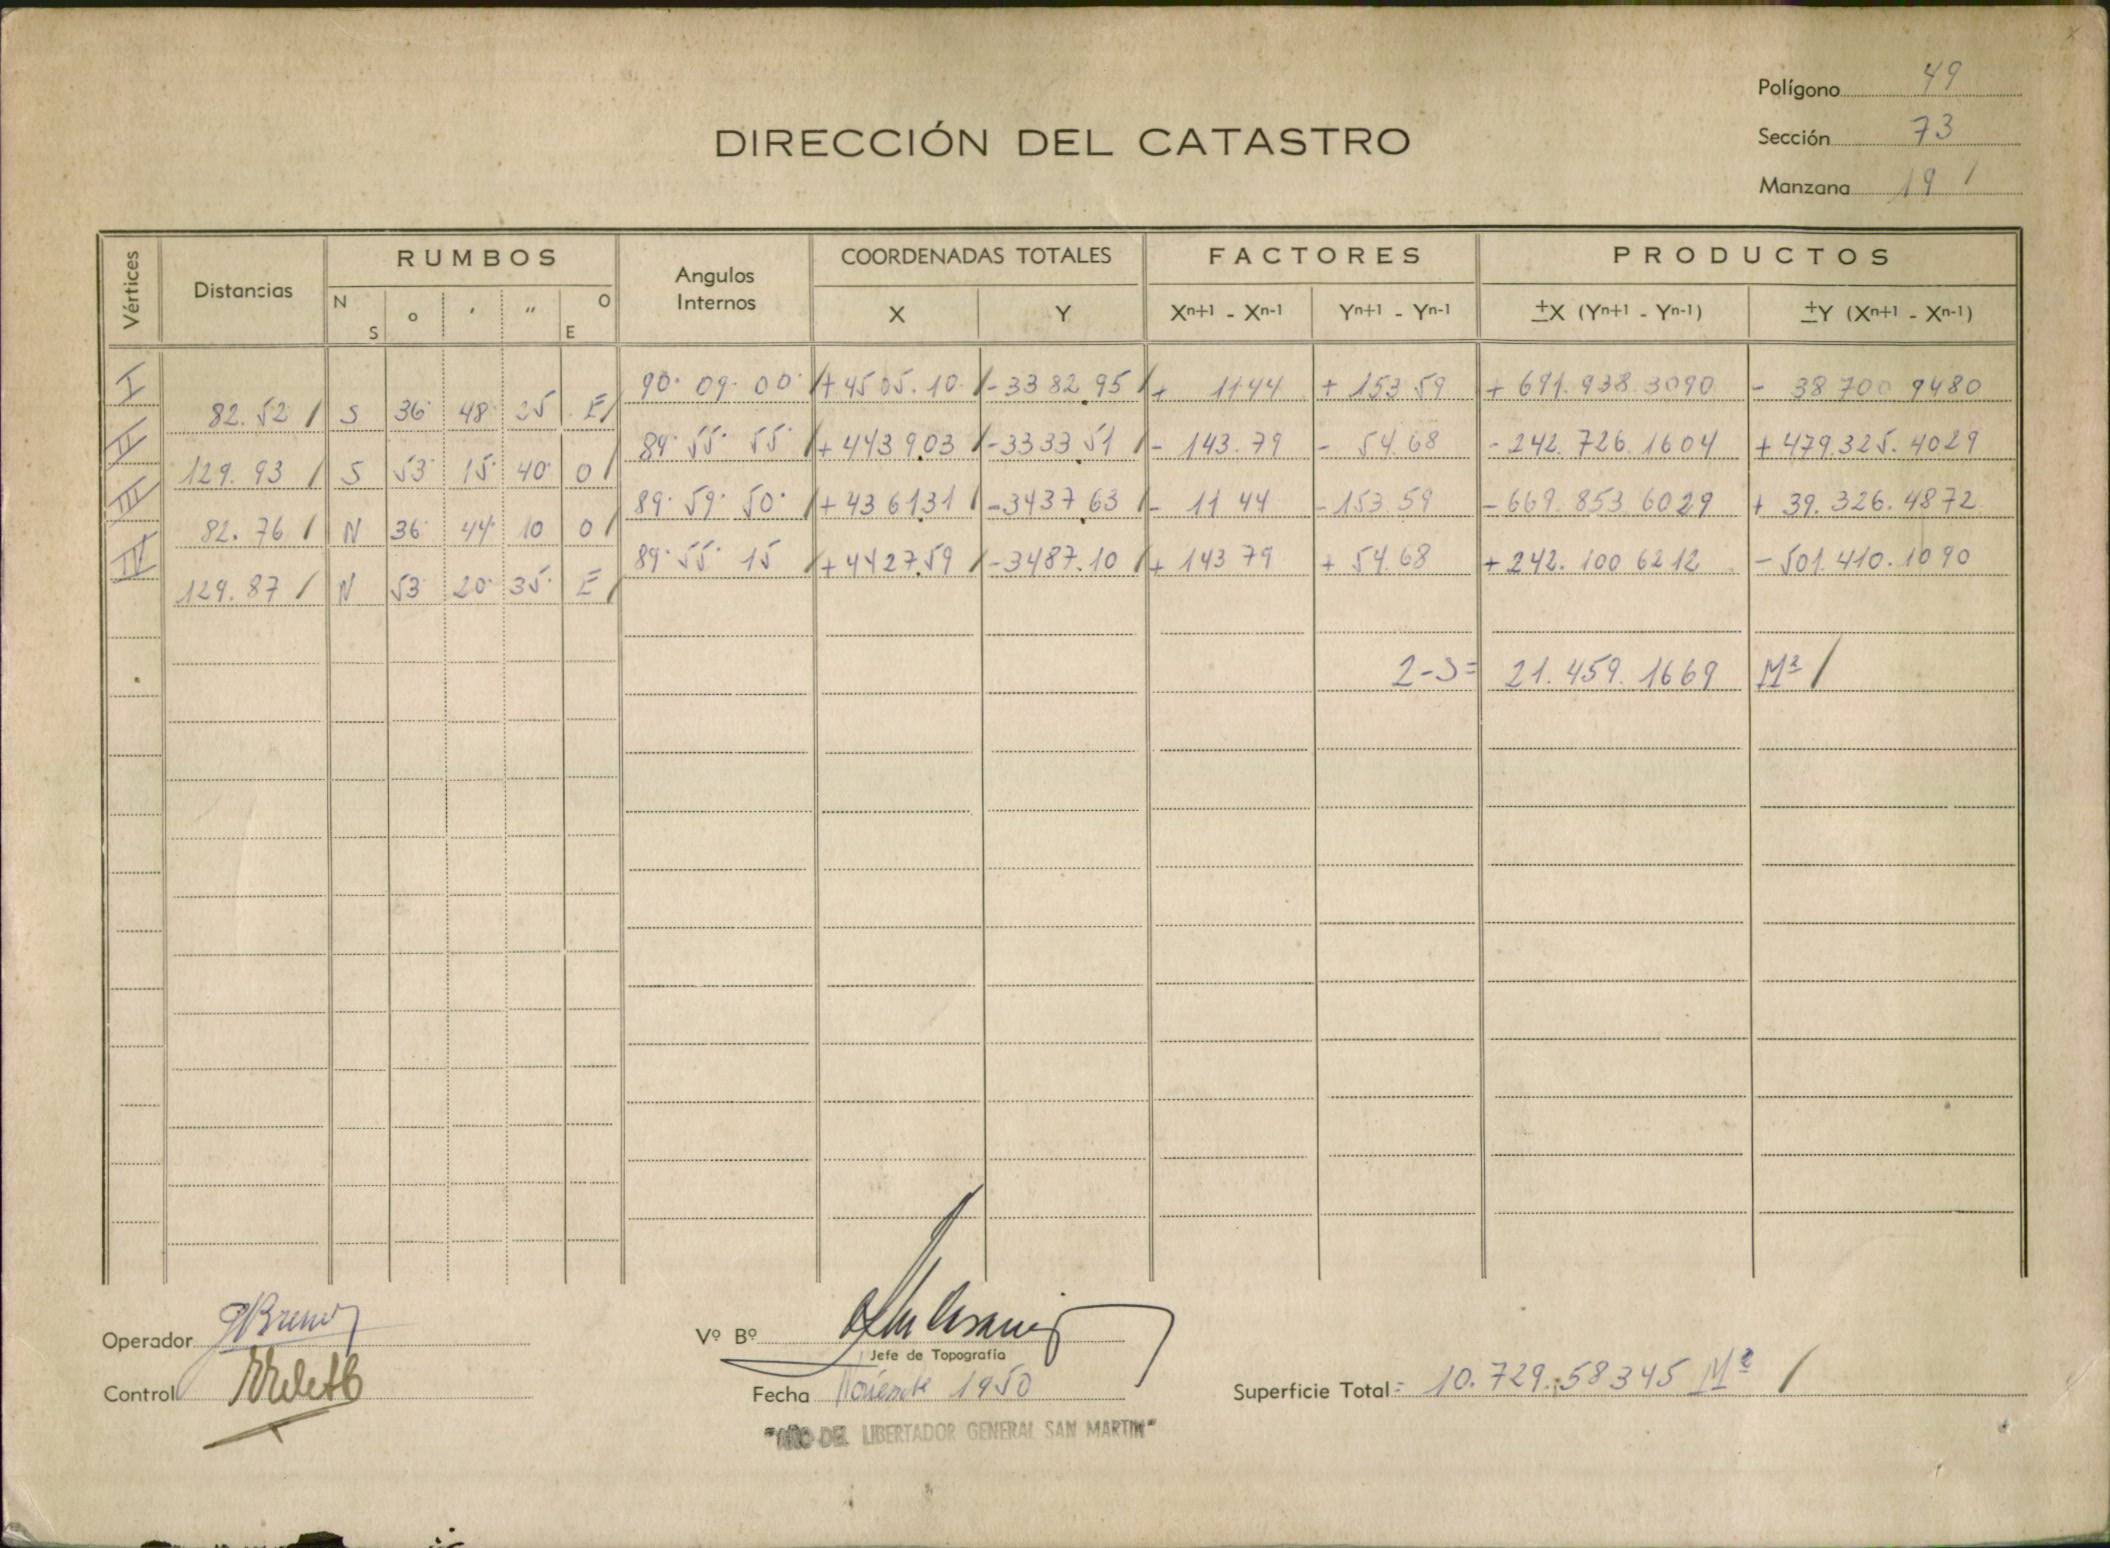 Polígono 49
DIRECCIÓN DEL CATASTRO
Sección 73
Manzana 19 /
Vértices
Distancias
RUMBOS
N S ° ' " O E
Angulos Internos
COORDENADAS TOTALES
X Y
FACTORES
Xn+1 - Xn-1 Yn+1 - Yn-1
PRODUCTOS
±X (Yn+1 - Yn-1) ±Y (Xn+1 - Xn-1)
I 90° 09' 00" +4505.10 / -3382.95 / + 11 44 + 153 59 + 691.938.3090 - 38 700 9480
82.52 / S 36° 48' 25 E /
II 89° 55' 55" / +4439.03 / -3333.51 / - 143.79 - 54.68 - 242.726.1604 + 479.325.4029
129.93 / S 53° 15' 40" O /
III 89° 59' 50" / +4361.31 / -3437.63 / - 11 44 -153 59 -669.853.6029 + 39.326.4872
82.76 / N 36° 44' 10 O /
IV 89° 55' 15 / +4427.59 / -3487.10 / + 143 79 + 54.68 +242.100 6212 -501.410.1090
129.87 / N 53° 20' 35" E /
2-S= 21.459.1669 M² /
Operador
Vº Bº
Jefe de Topografía
Control
Fecha 1950
Superficie Total = 10.729.58345 M² /
"AÑO DEL LIBERTADOR GENERAL SAN MARTIN"